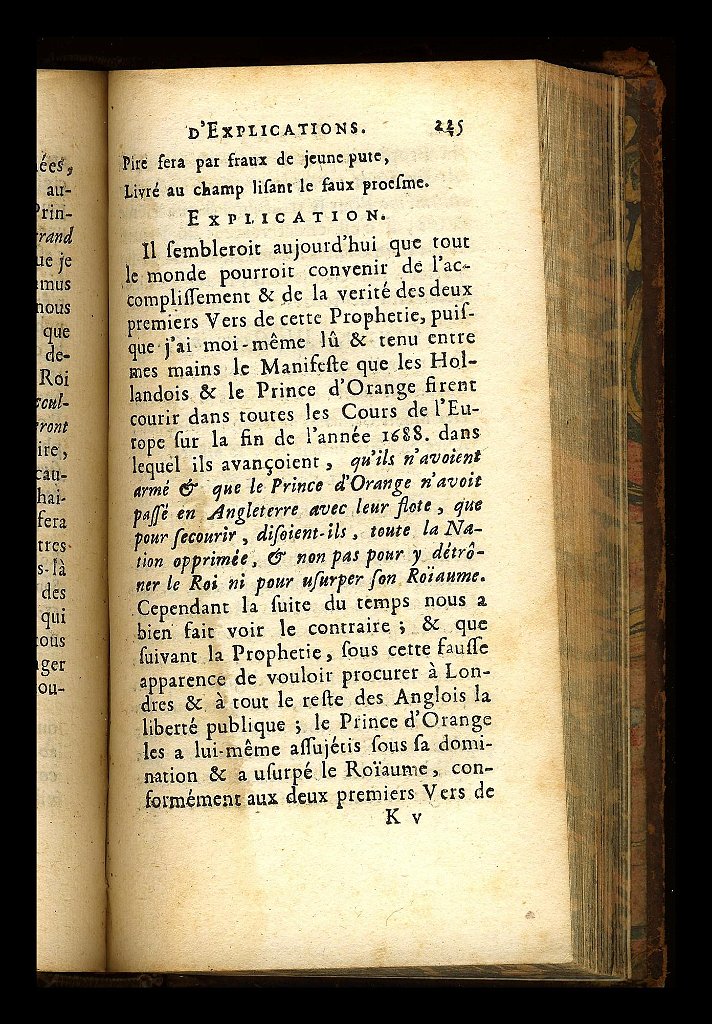 ées,
au-
Prin-
grand
que je
amus
nous
que
de-
Roi
ccul-
ront
ire,
cau-
hai-
fera
tres
s-là
des
qui
tous
ager
ou-
D'EXPLICATIONS. 225
Pire ſera par fraux de jeune pute,
Livré au champ liſant le faux proeſme.
EXPLICATION.
Il ſembleroit aujourd'hui que tout
le monde pourroit convenir de l'ac-
compliſſement & de la verité des deux
premiers Vers de cette Prophetie, puiſ-
que j'ai moi-même lû & tenu entre
mes mains le Manifeſte que les Hol-
landois & le Prince d'Orange firent
courir dans toutes les Cours de l'Eu-
rope ſur la fin de l'année 1688. dans
lequel ils avançoient, qu'ils n'avoient
armé & que le Prince d'Orange n'avoit
paſſé en Angleterre avec leur flote, que
pour ſecourir, diſoient-ils, toute la Na-
tion opprimée, & non pas pour y détrô-
ner le Roi ni pour uſurper ſon Roïaume.
Cependant la ſuite du temps nous a
bien fait voir le contraire; & que
ſuivant la Prophetie, ſous cette fauſſe
apparence de vouloir procurer à Lon-
dres & à tout le reſte des Anglois la
liberté publique; le Prince d'Orange
les a lui-même aſſujétis ſous ſa domi-
nation & a uſurpé le Roïaume, con-
formément aux deux premiers Vers de
K v